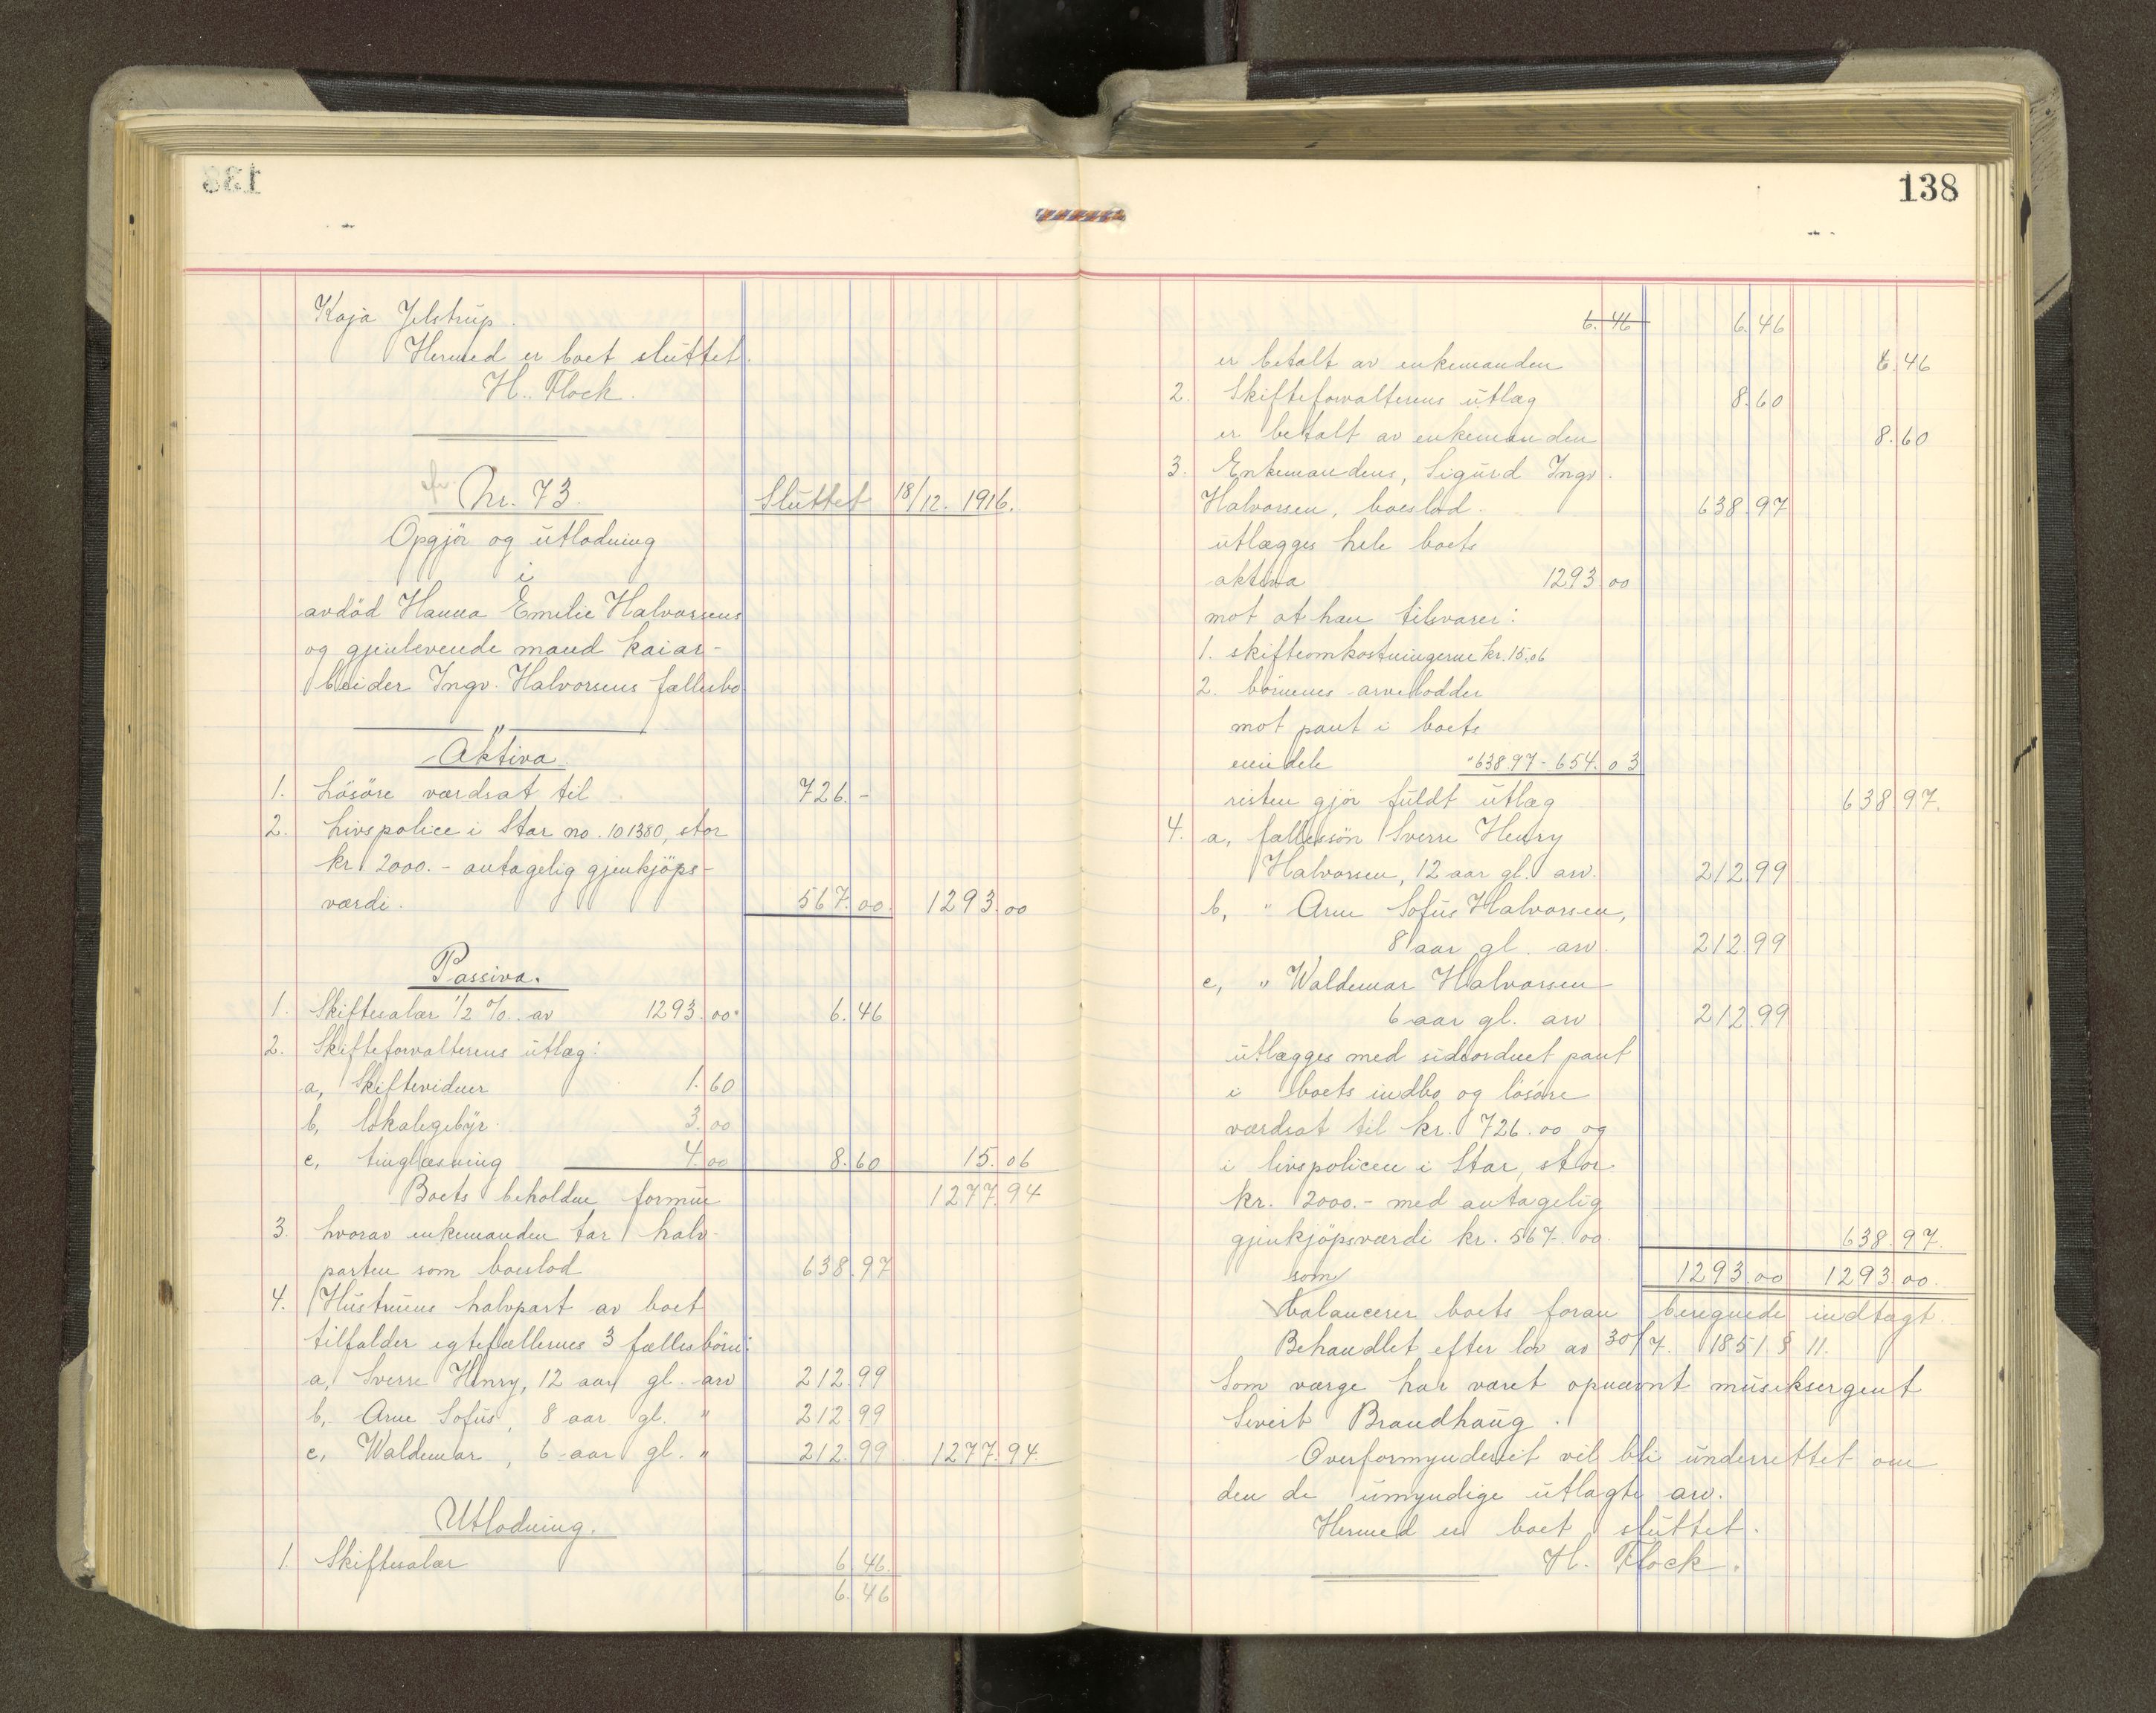 Kaja Jelstrup.
Hermed er boet sluttet.
H. Flock.
Nr. 73. Sluttet 18/12. 1916.
Opgjör og utlodning
i
avdöd Hanna Emilie Halvorsens
og gjenlevende mand kaiar-
beider Ingv. Halvorsens fællesbo
"
Aktiva
1. Lösöre værdsat til 726.-
2. Livspolice i Star no. 101380, stor
kr. 2000.- antagelig gjenkjöps-
værdi. 567.00. 1293.00
Passiva.
1. Skiftesalær 1/2 % av 1293.00 6.46
2. Skifteforvalterens utlæg:
a, Skiftevidner 1.60
b, lokalegebyr 3.00
c, tinglæsning 4.00 8.60 15.06
Boets beholdne formue 1277.94
3. hvorav enkemanden tar halv-
parten som boeslod 638.97
4. Hustruens halvpart av boet
tilfalder egtefællernes 3 fællesbörn:
a, Sverre Henry, 12 aar gl. arv 212.99
b, Arne Sofus, 8 aar gl. " 212.99
c, Waldemar, 6 aar gl. " 212.99 1277.94.
Utlodning.
1. Skiftesalær 6.46.
6.46
138
6.46 6.46
er betalt av enkemanden 6.46
2. Skifteforvalterens utlæg 8.60
er betalt av enkemanden 8.60
3. Enkemandens, Sigurd Ingv.
Halvorsen, boeslod. 638.97
utlægges hele boets
aktiva 1293.00
mot at han tilsvarer:
1. skifteomkostningerne kr. 15.06
2. börnenes arvelodder
mot pant i boets
eiendele " 638.97 - 654.03
resten gjör fuldt utlæg 638.97.
4. a, fællessön Sverre Henry
Halvorsen, 12 aar gl. arv. 212.99
b, " Arne Sofus Halvorsen,
8 aar gl. arv. 212.99
c, " Waldemar Halvorsen
6 aar gl. arv 212.99
utlægges med sideordnet pant
i boets indbo og lösöre
værdsat til kr. 726.00 og
i livspolicen i Star, stor
kr. 2000.- med antagelig
gjenkjöpsværdi kr. 567.00. 638.97.
som 1293.00 1293.00.
balancerer boets foran beregnede indtægt.
Behandlet efter lov av 30/7. 1851 § 11.
Som værge har været opnævnt musiksergent
Sivert Brandhaug.
Overformynderiet vil bli underrettet om
den de umyndige utlagte arv.
Hermed er boet sluttet.
H. Flock.